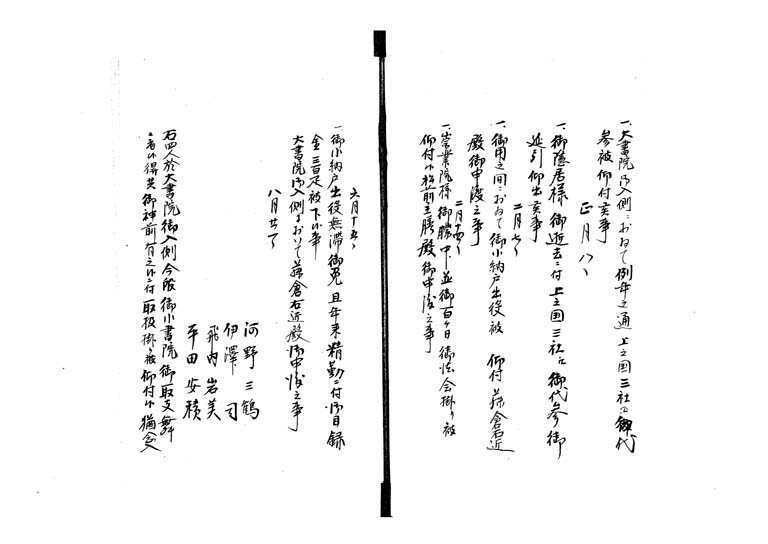 一、大書院御入側ニおゐて例年之通上之国三社江御代
参被仰付候事
正月八日
一、御隠居様御逝去ニ付上之国三社江御代参御
延引仰出候事
二月七日
一、御用之間ニおゐて御小納戸出役被 仰付蒜倉右近
殿御申渡之事
二月十四日
一、崇業院様御膳中並御百ヶ日御法会掛り被
仰付候松前主膳殿御申渡之事
六月十五日
一、御小納戸出役無滞御免且年来精勤ニ付御目録
金三百疋被下候事
大書院御入側ニおいて蒜倉右近殿御申渡之事
八月廿日
河野三鶴
伊澤司
飛内岩美
平田安積
右四人於大書院御入側今般御小書院御取支舞
ニ者候得共御神前有之候ニ付取扱掛り被仰付候猶念